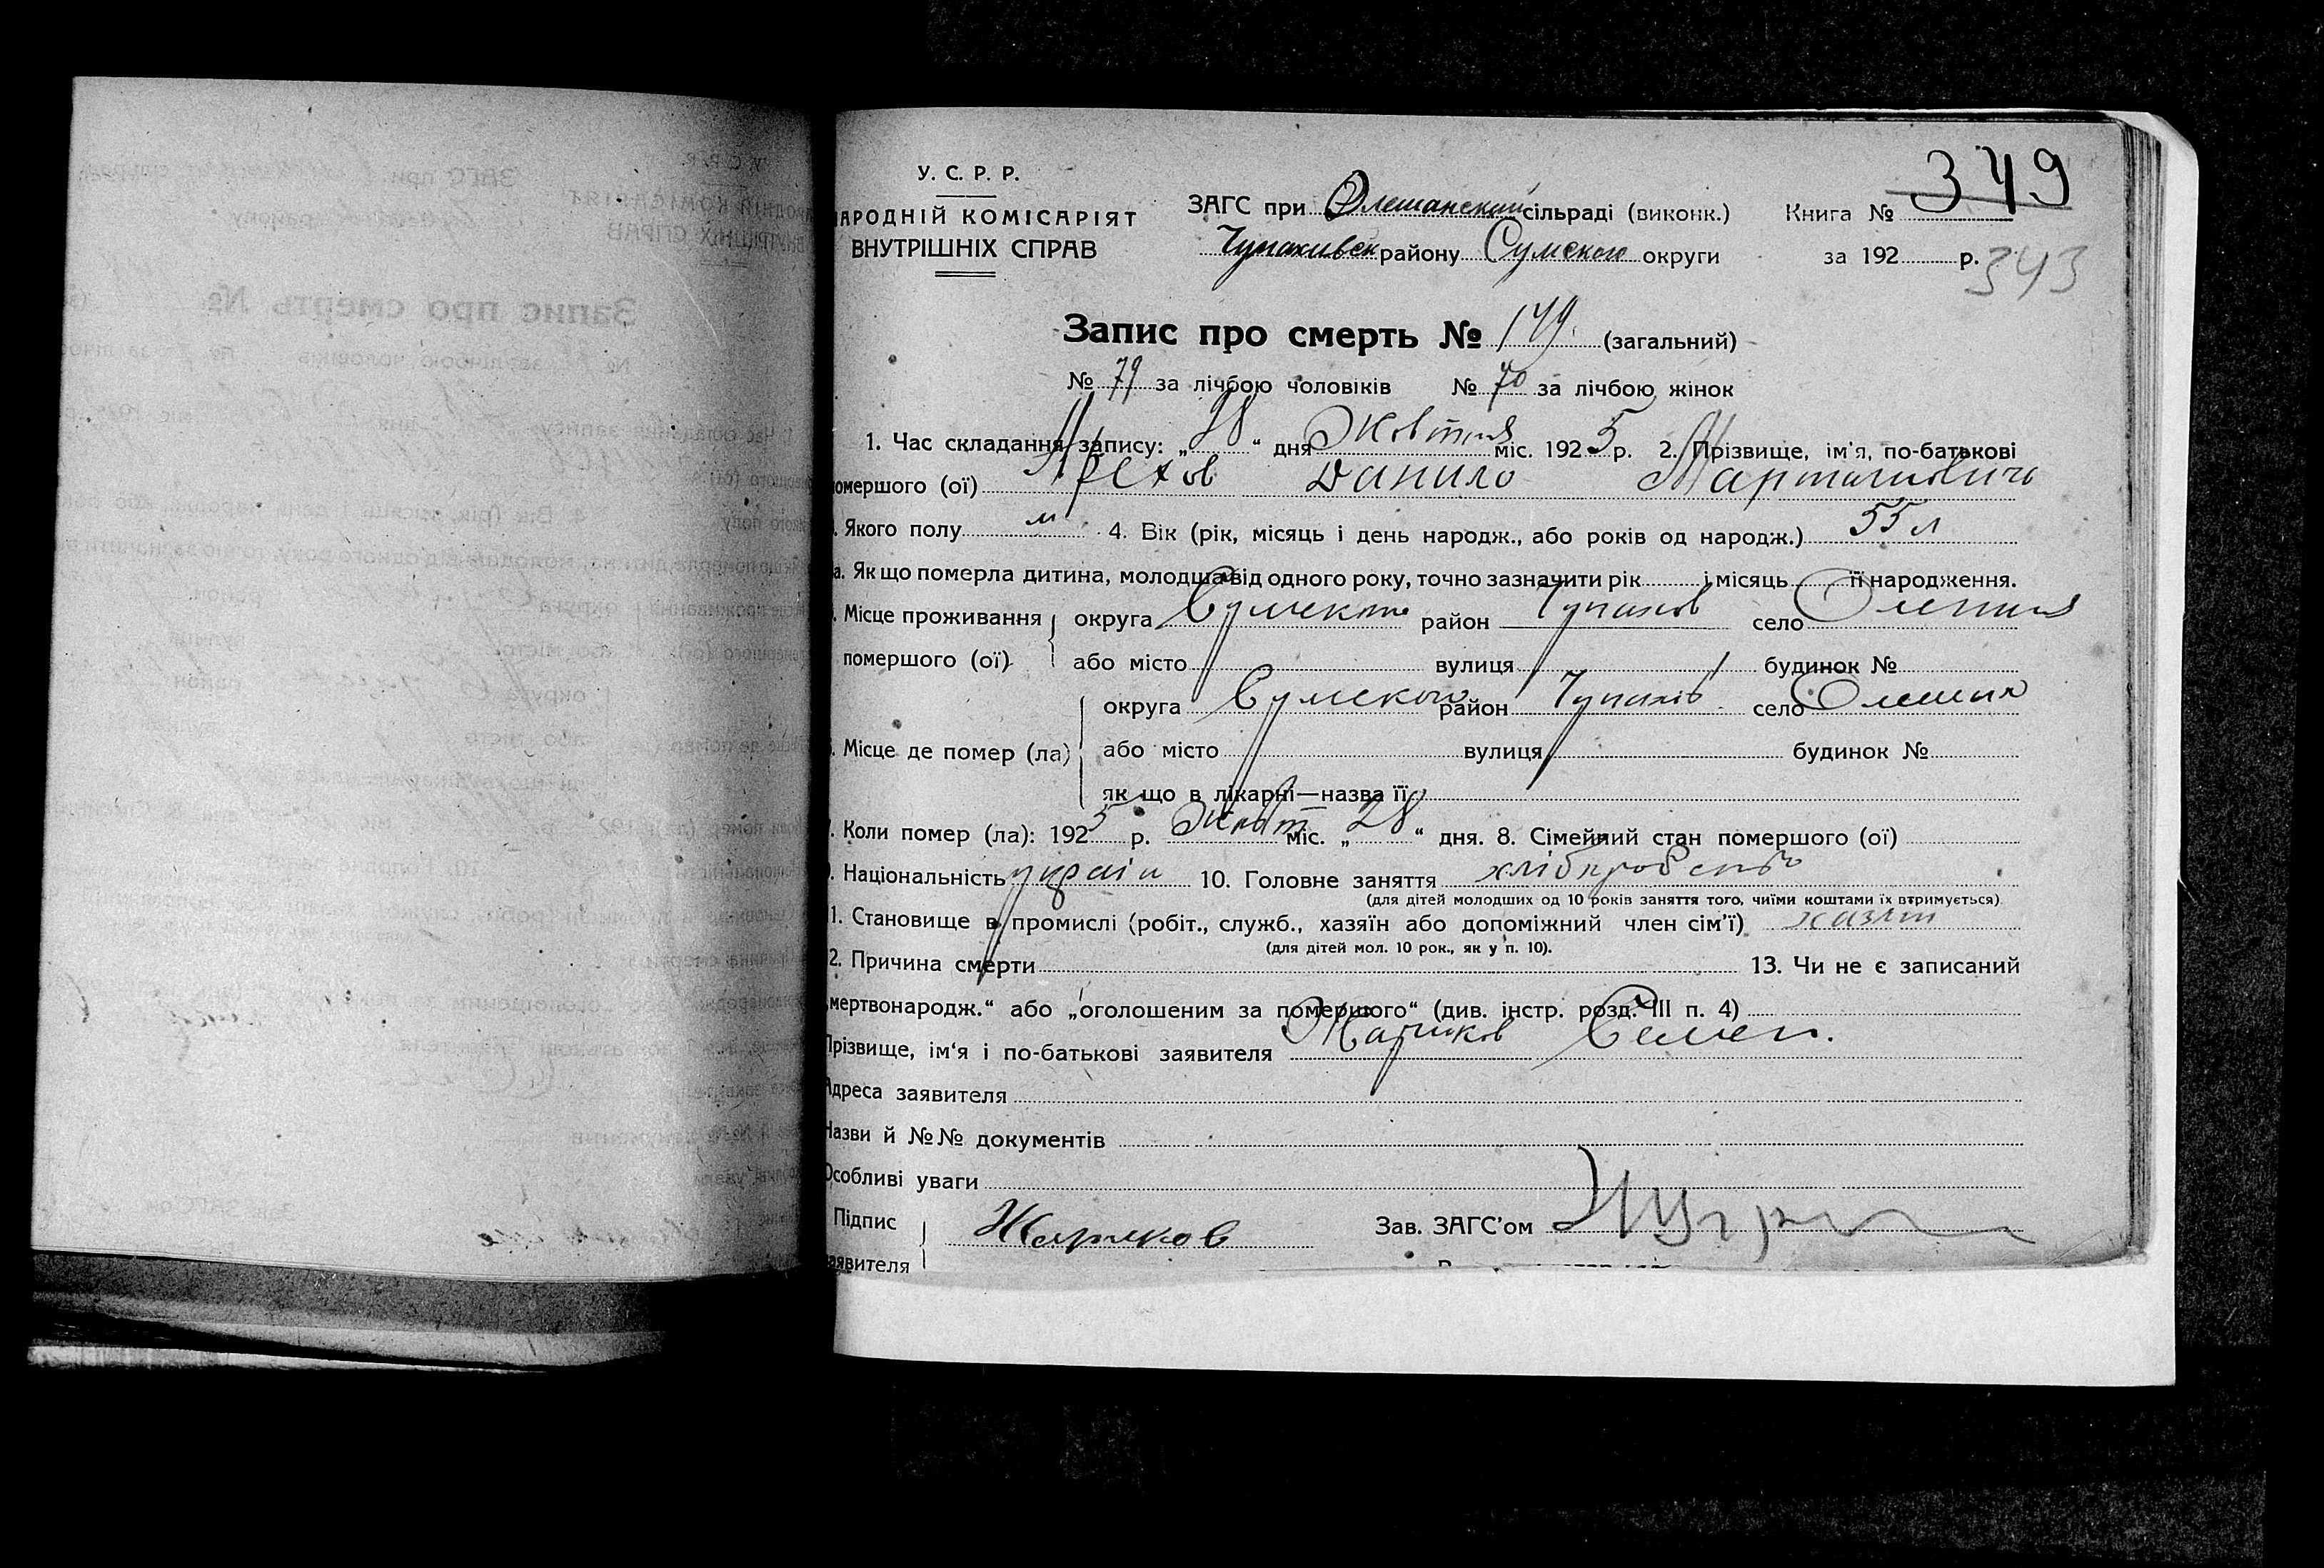 У. С. Р. Р.
АРОДНІЙ КОМІСАРІЯТ
ВНУТРІШНІХ СПРАВ
ЗАГС при Олешанской сільраді (виконк.)
Чупахивск району Сумского округи
Книга № 349
за 192 р. 343
Запис про смерть № 149. (загальний)
№ 79 за лічбою чоловіків № 70 за лічбою жінок
1. Час складання запису: „28“ дня Жовтня міс. 1925 р. 2. Прізвище, ім'я, по-батькові
омершого (ої) Данило
. Якого полу м 4. Вік (рік, місяць і день народж., або років од народж.) 55 л
а. Як що померла дитина, молодша від одного року, точно зазначити рік і місяць її народження.
. Місце проживання округа Сумского район Чупахов село Олешня
помершого (ої) або місто вулиця будинок №
округа Сумского район Чупахів село Олешня
. Місце де помер (ла) або місто вулиця будинок №
як що в лікарні—назва її
. Коли помер (ла): 1925 р. Жовт міс. „28“ дня. 8. Сімейний стан помершого (ої)
. Національність україн 10. Головне заняття хлібороб
(для дітей молодших од 10 років заняття того, чиїми коштами їх втримується)
1. Становище в промислі (робіт., служб., хазяїн або допоміжний член сім'ї) хазяїн
(для дітей мол. 10 рок., як у п. 10).
2. Причина смерти 13. Чи не є записаний
мертвонародж.“ або „оголошеним за помершого“ (див. інстр. розд. VIII п. 4)
Прізвище, ім'я і по-батькові заявителя Жариков Семен.
Адреса заявителя
Назви й №№ документів
Особливі уваги
Підпис
аявителя
Жариков
Зав. ЗАГС'ом